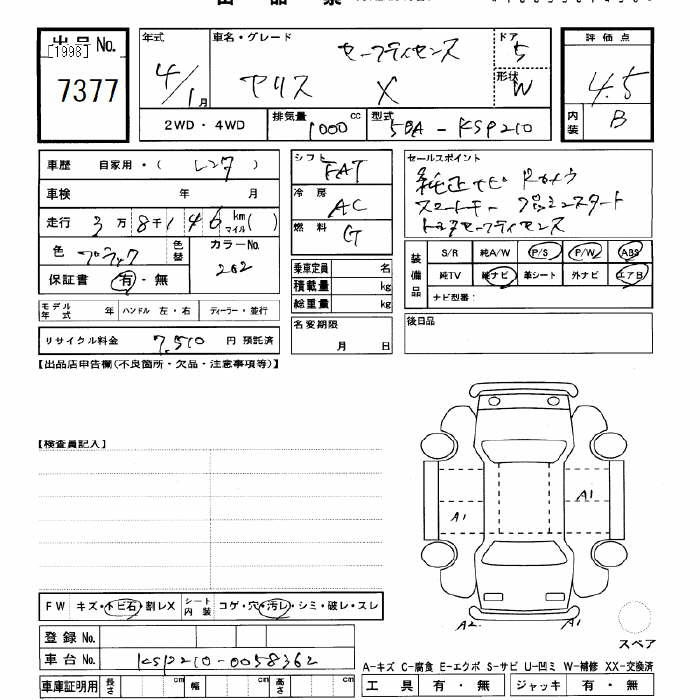 出品票
出品No. [1998]
7377
年式 4/1月
車名・グレード ヤリス X セーフティセンス
ドア 5
形状 W
評価点 4.5
内装 B
2WD・4WD
排気量 1000 cc
型式 5BA-KSP210
車歴 自家用・( レンタ )
車検 年 月
走行 3万8千146 km マイル( )
色 ブラック
色替
カラーNo. 202
保証書 有・無
モデル年式 年 ハンドル 左・右 ディーラー・並行
リサイクル料金 7,510 円 預託済
シフト FAT
冷房 AC
燃料 G
乗車定員 名
積載量 kg
総重量 kg
名変期限 月 日
セールスポイント
純正ナビ Bカメラ
スマートキー プッシュスタート
トヨタセーフティセンス
装備品 S/R 純A/W P/S P/W ABS
純TV 純ナビ 革シート 外ナビ エアB
ナビ型番:
後日品
【出品店申告欄(不良箇所・欠品・注意事項等)】
【検査員記入】
A1
A1
A2
A1
スペア
FW キズ・トビ石・割レX シート内装 コゲ・穴・汚レ・シミ・破レ・スレ
登録No.
車台No. KSP210-0058362
車庫証明用 長さ cm 幅 cm 高さ cm
A-キズ C-腐食 E-エクボ S-サビ U-凹ミ W-補修 XX-交換済
工具 有・無 ジャッキ 有・無